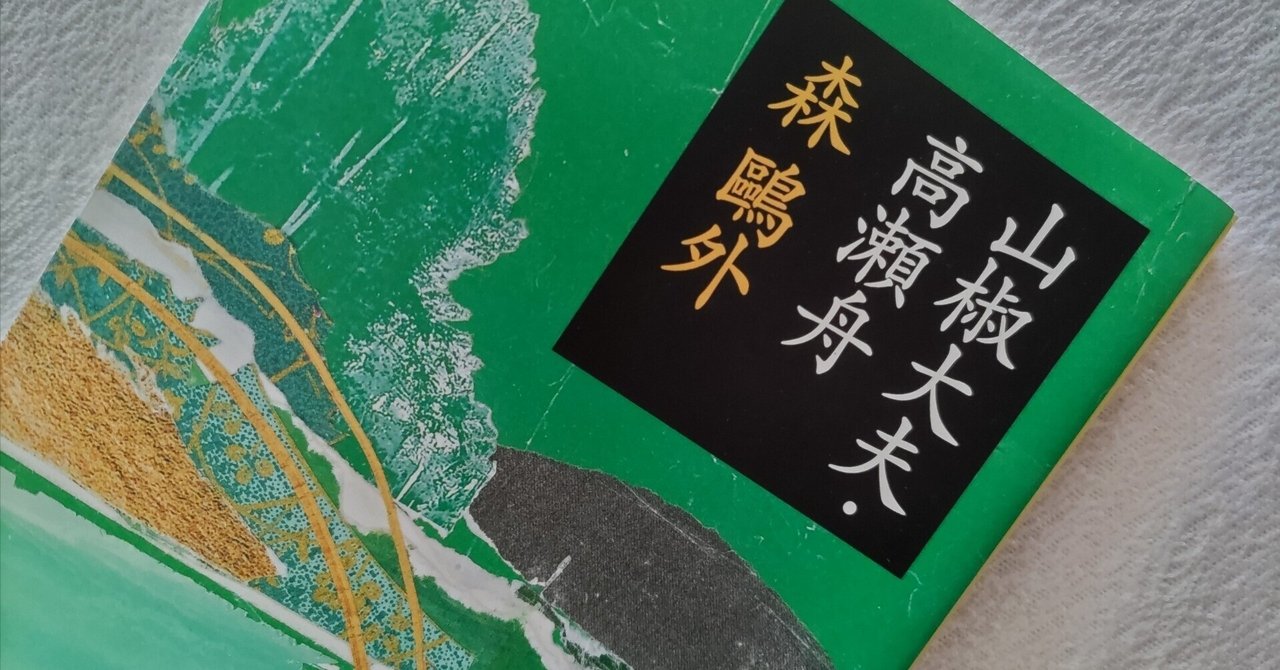 山椒大夫・
高瀬舟
森鷗外